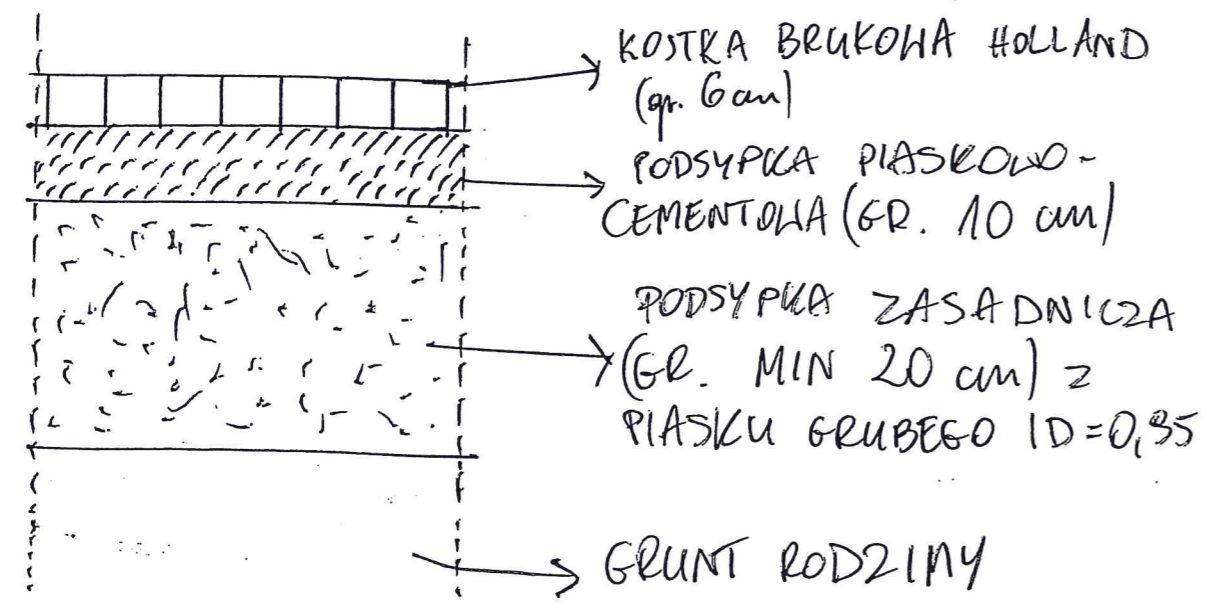 KOSTKA BRUKOWA HOLLAND
(gr. 6 cm)
PODSYPKA PIASKOWO-
CEMENTOWA (GR. 10 cm)
PODSYPKA ZASADNICZA
(GR. MIN 20 cm) z
PIASKU GRUBEGO ID=0,95
GRUNT RODZIMY